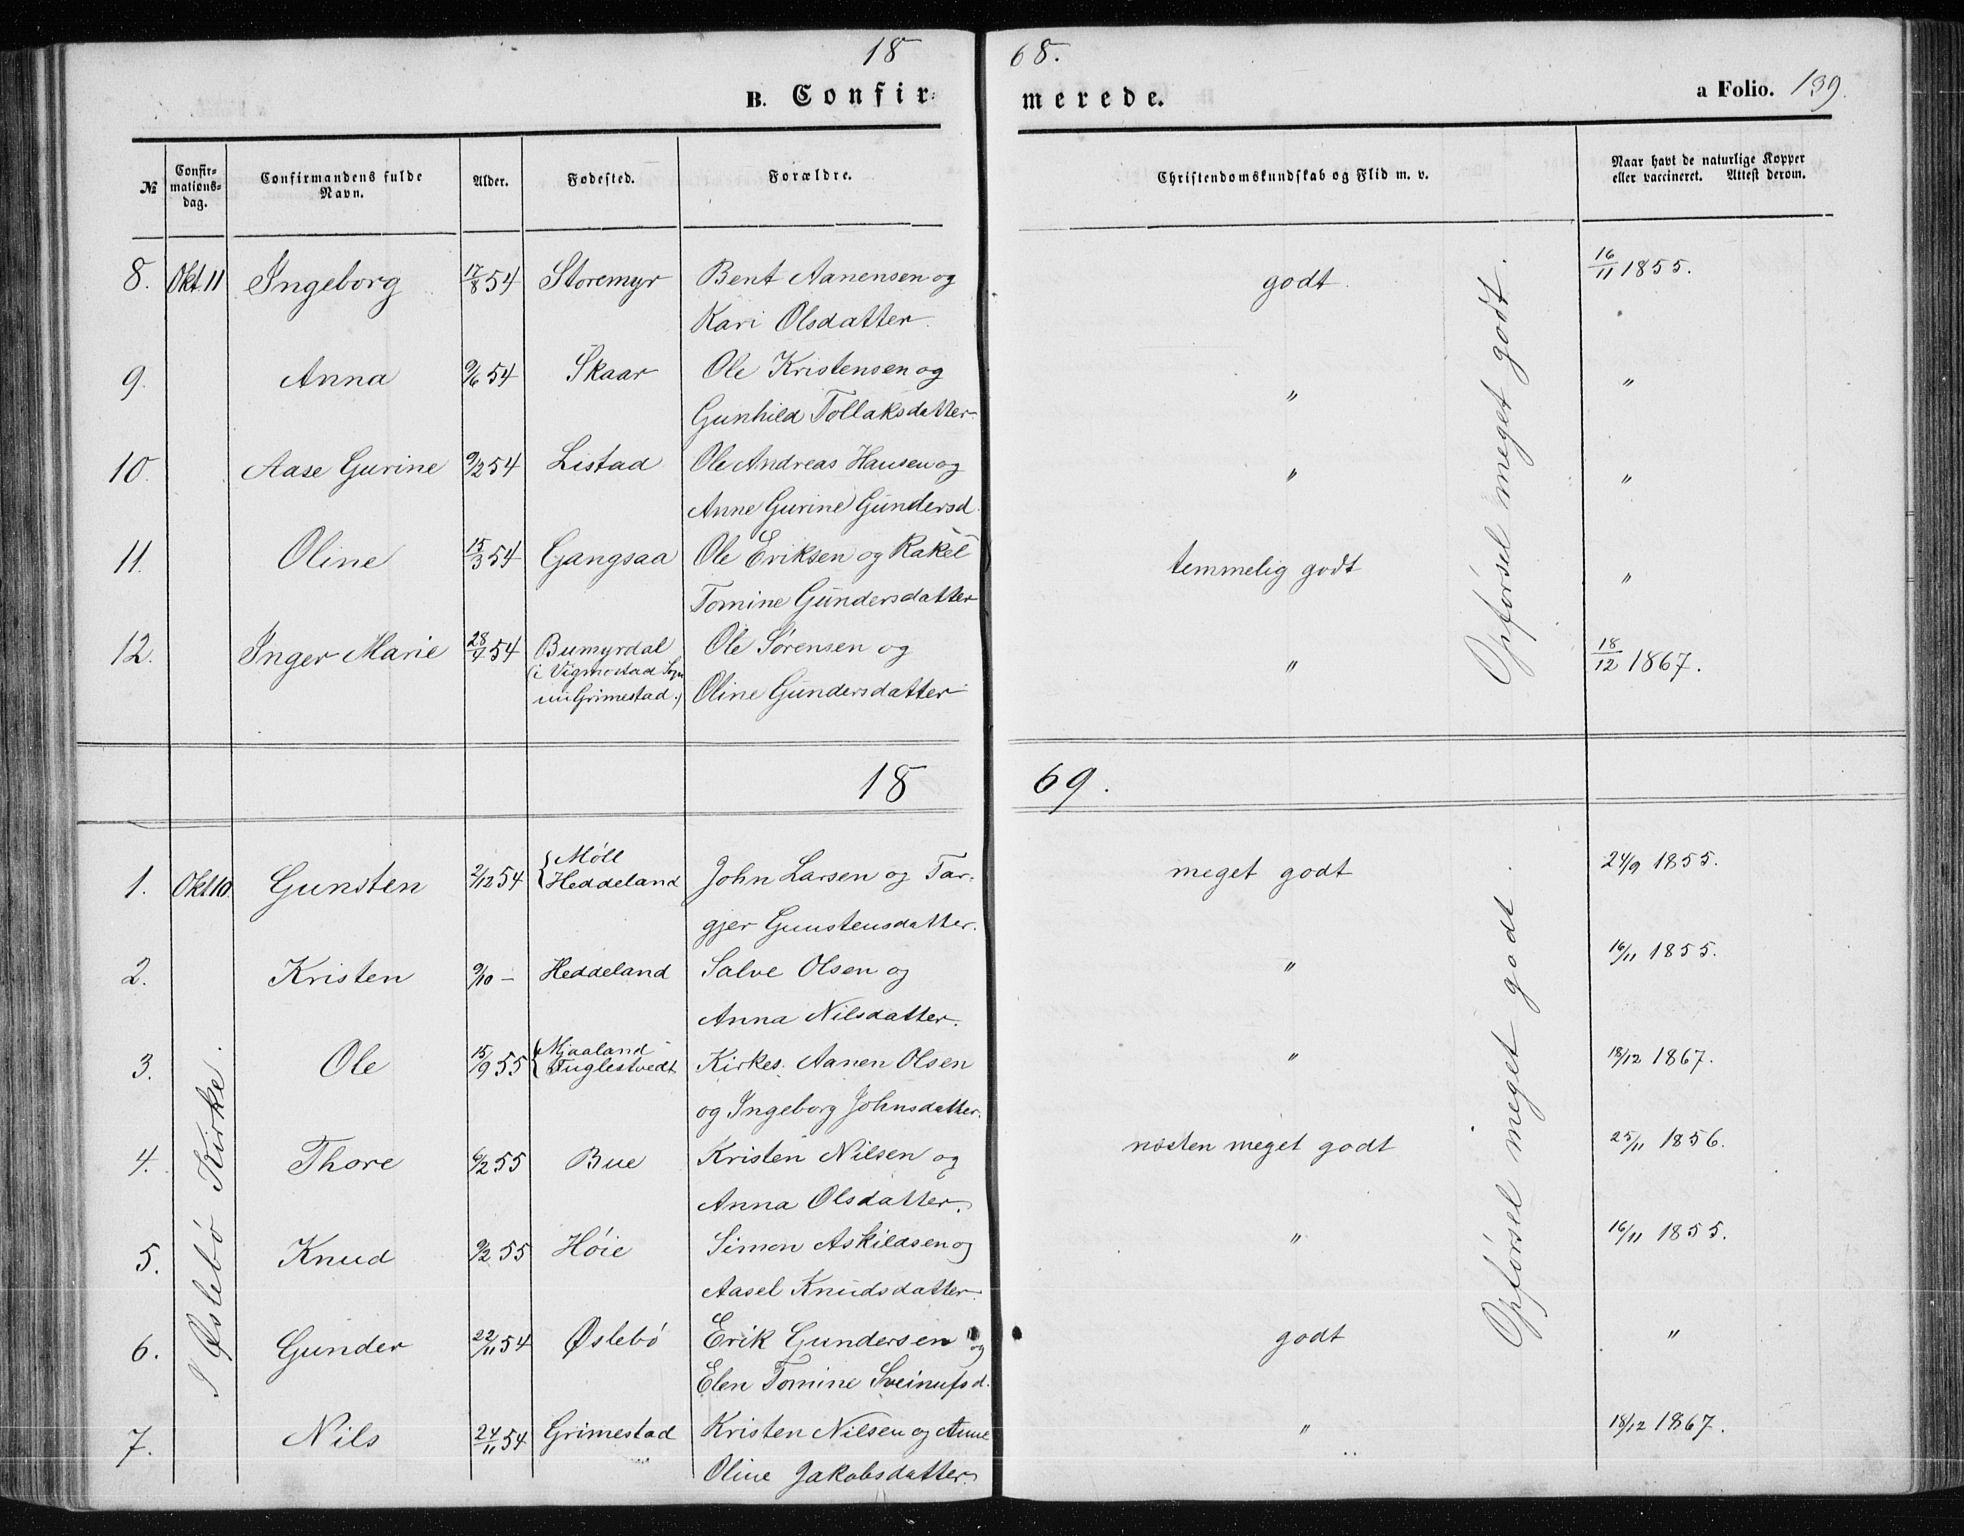 18 68.
B. Confirmerede. a Folio. 139.
№ Confirmationsdag. Confirmandens fulde Navn. Alder. Fødested. Forældre. Christendomskundskab og Flid m. v. Naar havt de naturlige Kopper eller vaccineret. Attest derom.
8. Okt 11 Ingeborg 17/8 54 Storemyr Bent Aanensen og godt. 16/11 1855.
Kari Olsdatter.
9. Anna 9/6 54 Skaar Ole Kristensen og " "
Gunhild Tollaksdatter
10. Aase Gurine 9/2 54 Listad Ole Andreas Hansen og " "
Anne Gurine Gundersd.
11. Oline 15/3 54 Gangsaa Ole Eriksen og Rakel temmelig godt "
Tomine Gundersdatter
12. Inger Marie 28/4 54 Bumyrdal Ole Sørensen og " 18/12 1867.
(i Vigmostad Sogn
nu Grimestad.) Oline Gundersdatter
Opførsel meget godt.
18 69.
1. Okt 10. Gunsten 2/12 54 {Møll Heddeland John Larsen og Tar- meget godt 24/9 1855.
gjer Gunstensdatter.
2. Kristen 9/10 - Heddeland Salve Olsen og " 16/11 1855.
Anna Nilsdatter.
3. Ole 15/9 55 {Mjaaland Fuglestvedt Kirkes. Aanen Olsen " 18/12 1867.
og Ingeborg Johnsdatter.
4. Thore 6/2 55 Bue Kristen Nilsen og næsten meget godt 25/11 1856.
Anna Olsdatter.
5. Knud 9/2 55 Høie Simon Askildsen og " 16/11 1855.
Aasel Knudsdatter.
6. Gunder 22/11 54 Øslebö Erik Gundersen og godt "
Elen Tomine Sveinufsd.
7. Nils 24/11 54 Grimestad Kristen Nilsen og Anne " 18/12 1867.
Oline Jakobsdatter.
I Øslebö Kirke.
Opførsel meget godt.